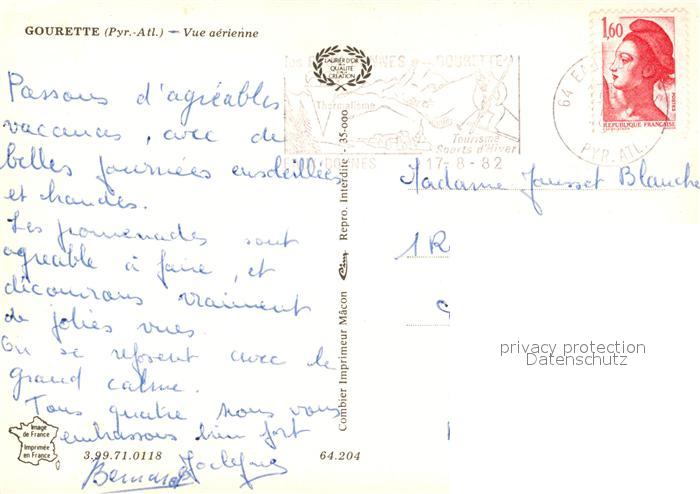 GOURETTE (Pyr.-Atl.) — Vue aérienne
Passons d'agréables
vacances, avec de
belles journées ensoleillées
et chaudes.
Les promenades sont
agréable à faire, et
découvrons vraiment
de jolies vues.
On se reposent avec le
grand calme.
Tous quatre nous vous
embrassons bien fort
Bernard
Image
de France
Imprimée
en France
3.99.71.0118
64.204
LAURIER D'OR
DE LA
QUALITÉ
CREATION
Combier Imprimeur Mâcon Cim Repro. Interdite - 35-000
GOURETTE
Thermalisme
Tourisme
Sports d'Hiver
17-8-82
64
PYR. ATL.
1,60
POSTES
REPUBLIQUE FRANÇAISE
Madame Jausset Blanche
1 R
privacy protection
Datenschutz